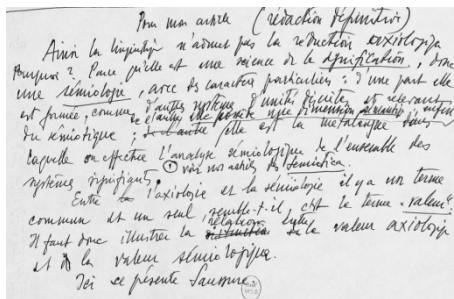 Pour mon article (rédaction définitive)
Ainsi la linguistique n'admet pas la réduction axiologique
Pourquoi ? Parce qu'elle est une science de la signification, donc
une sémiologie, avec des caractères particuliers : d'une part elle
est formée, comme d'autres systèmes d'unités distinctes et relevant
elle possède une dimension
du sémiotique ; d'autre elle est la métalangue dans
laquelle on effectue l'analyse sémiologique de l'ensemble des
systèmes signifiants. ① voir nos articles des Semiotica.
Entre l'axiologie et la sémiologie il y a un terme
commun et un seul, semble-t-il, c'est le terme "valeur".
relation entre
Il faut donc illustrer la distinction de la valeur axiologique
et la valeur sémiologique.
Ici se présente Saussure